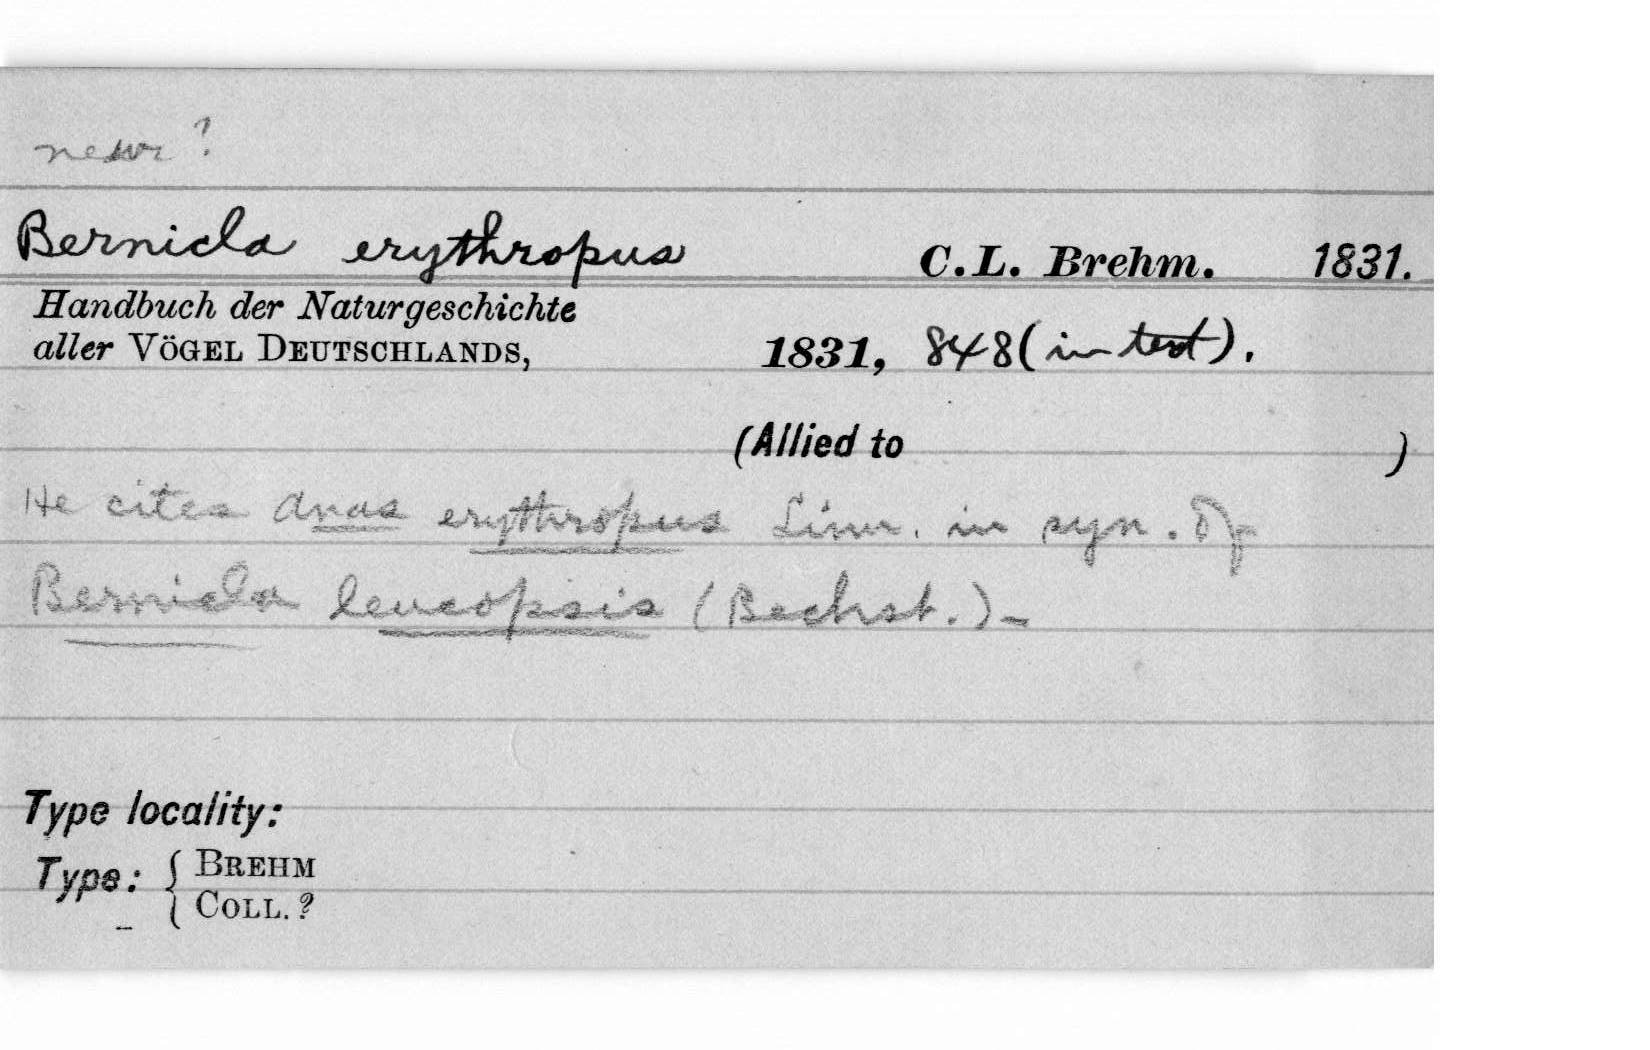 new ?
Bernicla erythropus C.L. Brehm. 1831.
Handbuch der Naturgeschichte
aller VÖGEL DEUTSCHLANDS, 1831, 848 (in text).
(Allied to )
He cites Anas erythropus Linn. in syn. of
Bernicla leucopsis (Bechst.)-
Type locality:
Type: { BREHM
COLL. ?